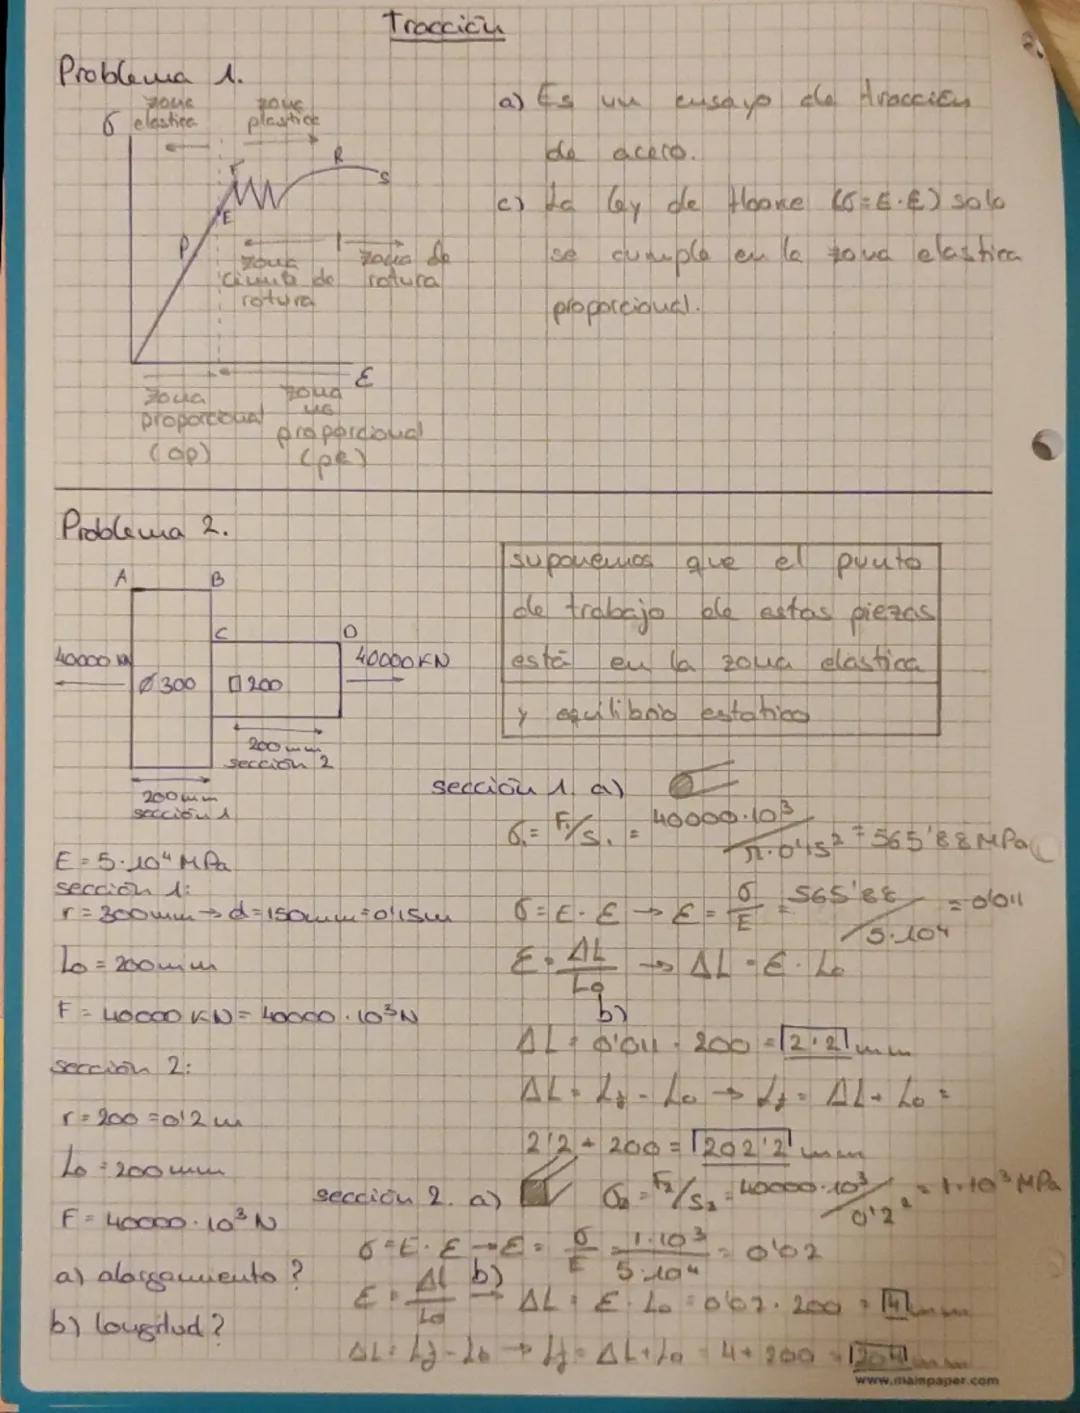 Tracción
Problema 1.
zona elastica
zona plastica
σ
R
F
S
E
P
zona limite de rotura
zona de rotura
ε
zona proporcional (op)
zona no proporcional (pe)
a) Es un ensayo de tracción
de acero.
c) La ley de Hooke (σ=E·ε) solo
se cumple en la zona elastica
proporcional.
Problema 2.
A B
C D
40000 KN
40000 KN
ø300 □200
200mm
sección 2
200mm
sección 1
suponemos que el punto
de trabajo de estas piezas
está en la zona elastica
y equilibrio estatico
E = 5·10⁴ MPa
sección 1:
r = 300mm → d = 150mm = 0'15m
Lo = 200mm
F = 40000 KN = 40000·10³N
sección 2:
r = 200 = 0'2 m
Lo = 200mm
F = 40000·10³ N
a) alargamiento?
b) longitud?
sección 1. a)
σ₁ = F₁/S₁ = 40000·10³/π·0'15² = 565'88 MPa
σ = E·ε → ε = σ/E = 565'88/5·10⁴ = 0'011
ε = ΔL/Lo → ΔL = ε·Lo
b)
ΔL = 0'011 · 200 = 2'2 mm
ΔL = Lf - Lo → Lf = ΔL + Lo =
2'2 + 200 = 202'2 mm
sección 2. a) σ₂ = F₂/S₂ = 40000·10³/0'2² = 1·10³ MPa
σ = E·ε → ε = σ/E = 1·10³/5·10⁴ = 0'02
ε = ΔL/Lo b) → ΔL = ε·Lo = 0'02·200 = 4 mm
ΔL = Lf - Lo → Lf = ΔL + Lo = 4 + 200 = 204 mm
www.mainpaper.com